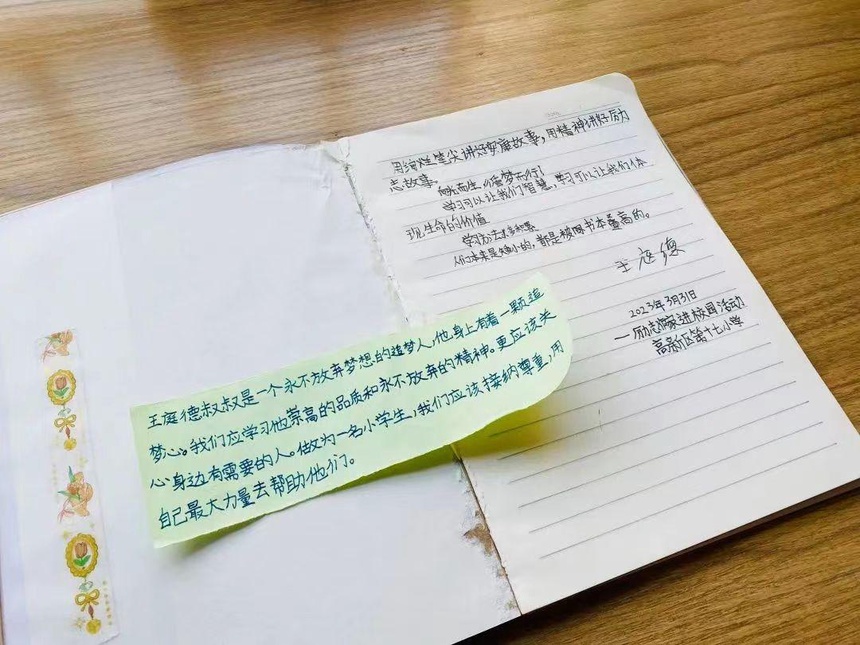 用绚烂笔尖讲好安康故事，用精神讲好励
志故事。
向光而生，追梦而行！
学习可以让我们智慧，学习可以让我们体
现生命的价值
学习方法：多积累
人们本来是矮小的，都是被用书本垫高的。
王庭德
2023年3月31日
—励志作家进校园活动
高新区第十七小学
王庭德叔叔是一个永不放弃梦想的追梦人，他身上有着一颗追
梦心。我们应学习他崇高的品质和永不放弃的精神。更应该关
心身边有需要的人。做为一名小学生，我们应该接纳尊重，用
自己最大力量去帮助他们。